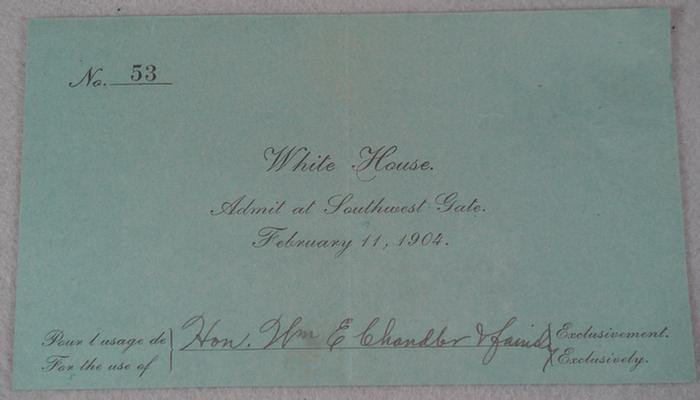 No. 53
White House.
Admit at Southwest Gate.
February 11, 1904.
Pour l usage de Hon. Wm E Chandler & Exclusivement.
For the use of Exclusively.